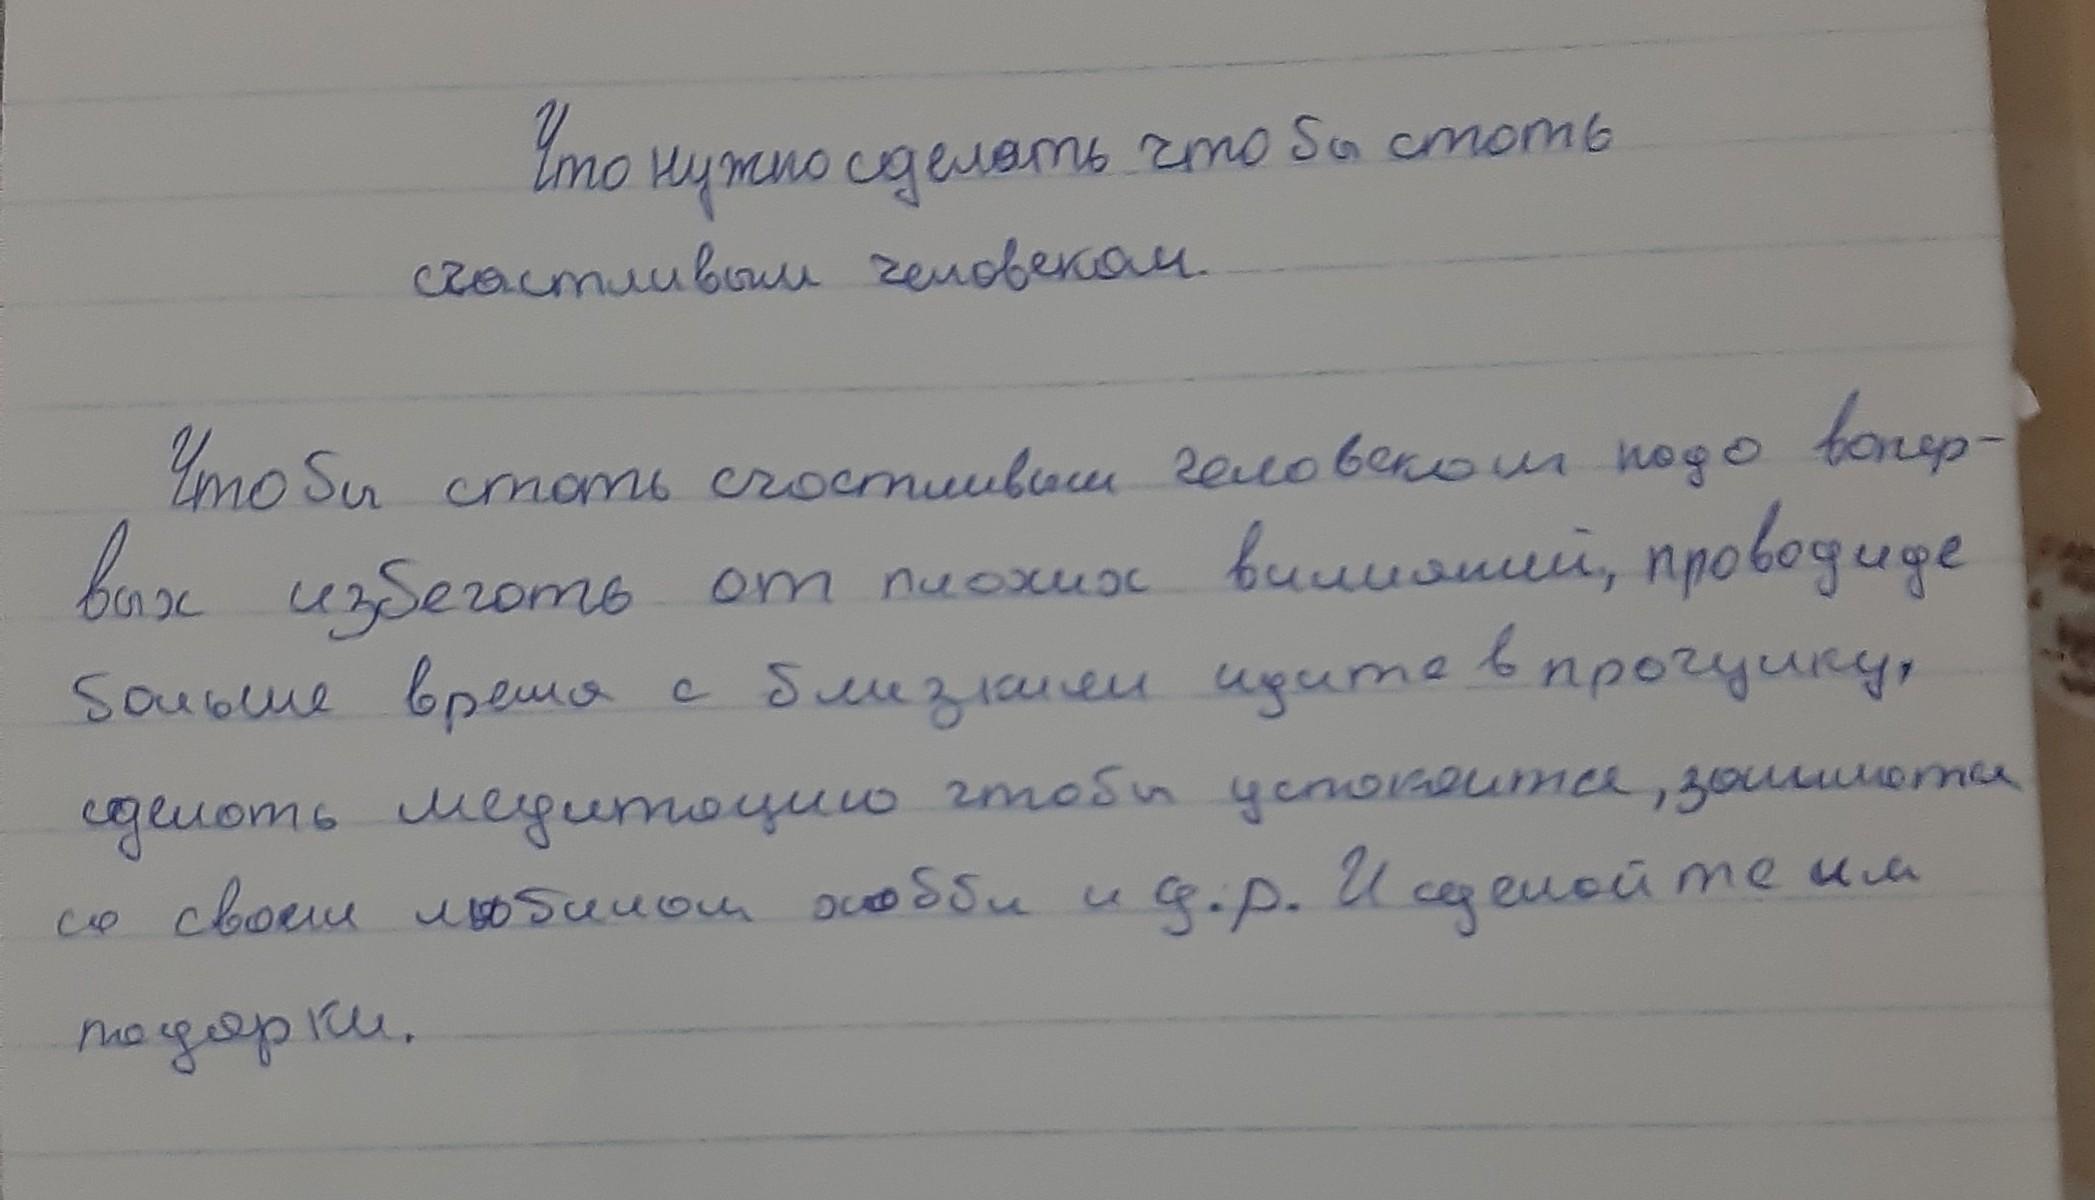 Что нужно сделать чтобы стать
счастливым человеком.
Чтоби стать счастливым человеком надо вопер-
вых избегать от плохих вилияний, проводиде
больше время с близкими идите в прогулку,
сделать медитацию чтоби успокоится, заниматся
со своем любимом хобби и д.р. И сделайте им
подарки.